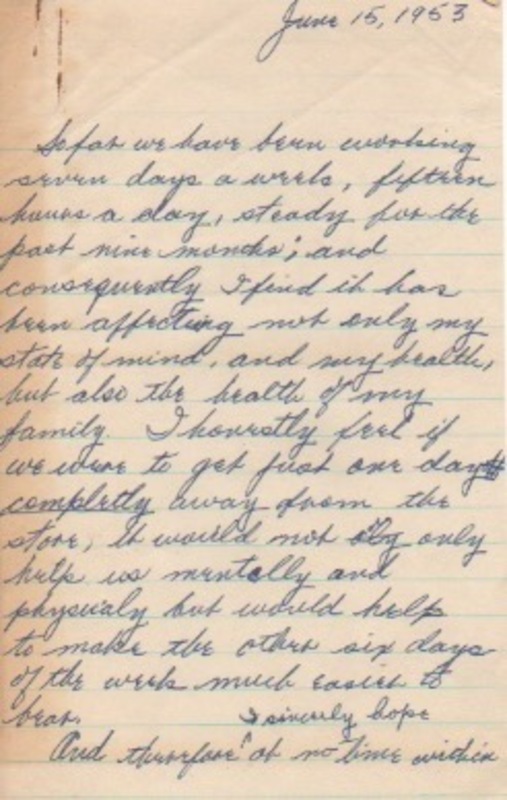 June 15, 1953
Sofar we have been working
seven days a week, fifteen
hours a day, steady for the
past nine months; and
consequently I find it has
been affecting not only my
state of mind, and my health,
but also the health of my
family. I honestly feel if
we were to get just one day
completly away from the
store, it would not only
help us mentally and
physicaly but would help
to make the other six days
of the week much easier to
bear.
I sincerly hope
And therefore at no time within